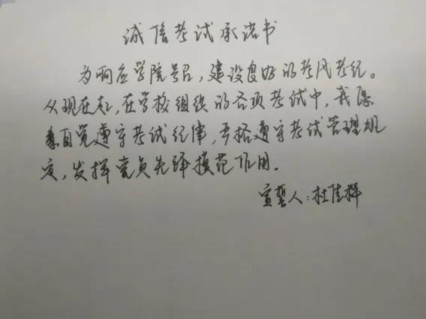 诚信考试承诺书
为响应学院号召，建设良好的考风考纪。
从现在起，在学校组织的各项考试中，我愿
自觉遵守考试纪律，严格遵守考试管理规
定，发挥党员先锋模范作用。
宣誓人：杜佳